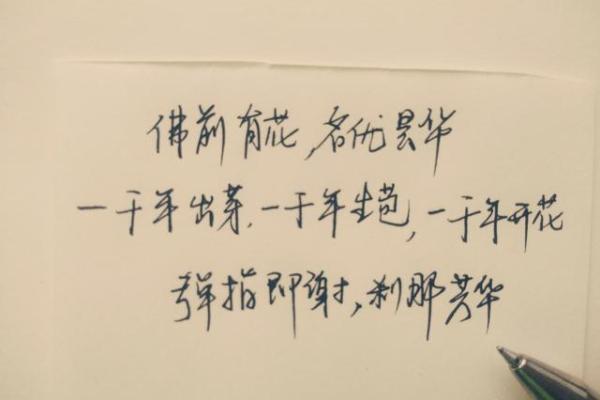 佛前有花,名优昙华
一千年出芽,一千年生苞,一千年开花
弹指即谢,刹那芳华